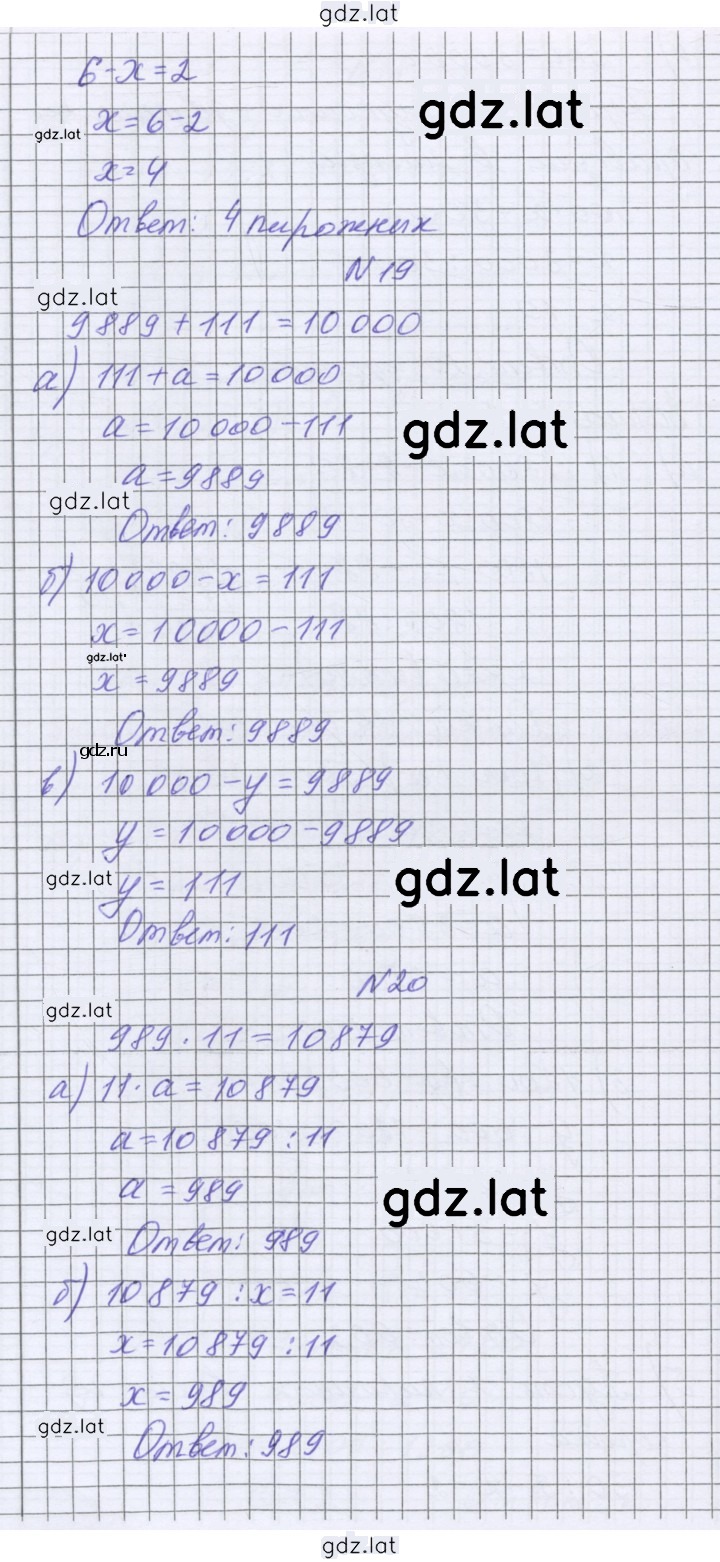 gdz.lat
6-x=2
gdz.lat
gdz.lat x=6-2
x=4
Ответ: 4 пирожных
N 19
gdz.lat
9889+111=10 000
а) 111+a=10 000
a=10 000-111
gdz.lat
a=9889
gdz.lat
Ответ: 9889
б) 10 000-x=111
x=10 000-111
gdz.lat
x=9889
Ответ: 9889
gdz.ru
в) 10 000-y=9889
y=10 000-9889
gdz.lat y=111
gdz.lat
Ответ: 111
N 20
gdz.lat
989·11=10 879
а) 11·a=10 879
a=10 879:11
a=989
gdz.lat
gdz.lat
Ответ: 989
б) 10 879:x=11
x=10 879:11
x=989
gdz.lat
Ответ: 989
gdz.lat